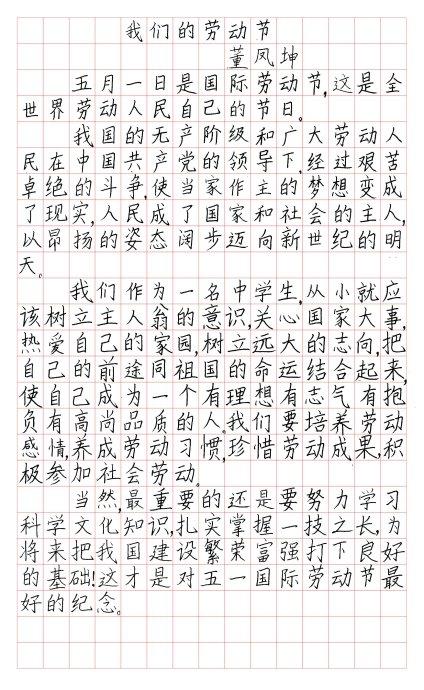 我们的劳动节
董凤坤
五月一日是国际劳动节,这是全
世界劳动人民自己的节日。
我国的无产阶级和广大劳动人
民在中国共产党的领导下,经过艰苦
卓绝的斗争,使当家作主的梦想变成
了现实,人民成了国家和社会的主人,
以昂扬的姿态阔步迈向新世纪的明
天。
我们作为一名中学生,从小就应
该树立主人翁的意识,关心国家大事,
热爱自己的家园,树立远大的志向,把
自己的前途同祖国的命运结合起来,
使自己成为一个有理想有志气有抱
负有高尚品质的人,我们要培养劳动
感情,养成劳动习惯,珍惜劳动成果,积
极参加社会劳动。
当然,最重要的还是要努力学习
科学文化知识,扎实掌握一技之长,为
将来把我国建设繁荣富强打下良好
的基础!这才是对五一国际劳动节最
好的纪念。